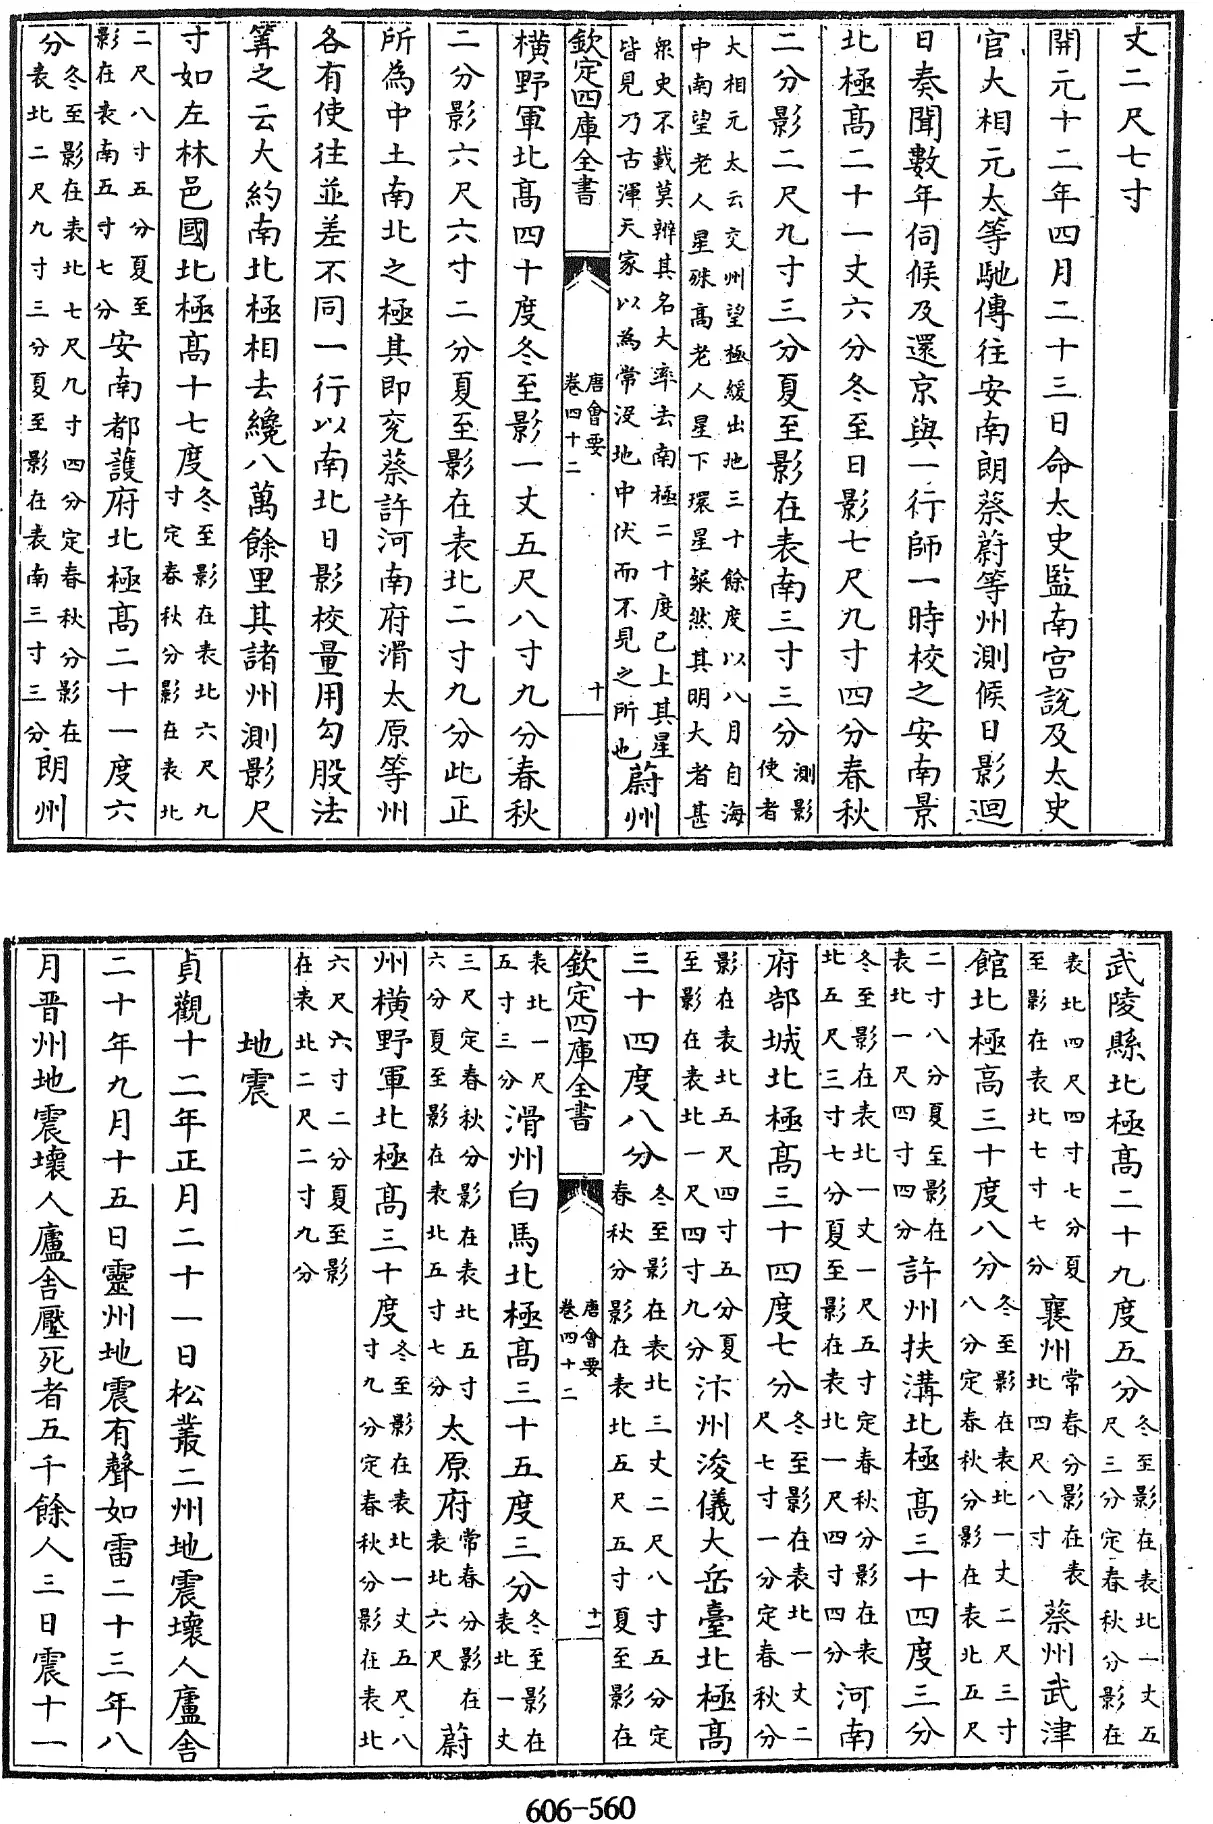 丈二尺七寸
開元十二年四月二十三日命太史監南宫說及太史
官大相元太等馳傳往安南朗蔡蔚等州測候日影迴
日奏聞數年伺候及還京與一行師一時校之安南景
北極高二十一丈六分冬至日影七尺九寸四分春秋
二分影二尺九寸三分夏至影在表南三寸三分測影使者
大相元太云交州望極緩出地三十餘度以八月自海
中南望老人星殊高老人星下環星粲然其明大者甚
衆史不載莫辨其名大率去南極二十度已上其星
皆見乃古渾天家以為常沒地中伏而不見之所也蔚州
欽定四庫全書 唐會要 卷四十二 十
横野軍北高四十度冬至影一丈五尺八寸九分春秋
二分影六尺六寸二分夏至影在表北二寸九分此正
所為中土南北之極其即兖蔡許河南府滑太原等州
各有使往並差不同一行以南北日影校量用勾股法
筭之云大約南北極相去纔八萬餘里其諸州測影尺
寸如左林邑國北極高十七度冬至影在表北六尺九寸定春秋分影在表北
二尺八寸五分夏至影在表南五寸七分安南都䕶府北極高二十一度六
分冬至影在表北七尺九寸四分定春秋分影在表北二尺九寸三分夏至影在表南三寸三分朗州
武陵縣北極高二十九度五分冬至影在表北一丈五尺三分定春秋分影在
表北四尺四寸七分夏至影在表北七寸七分襄州常春分影在表北四尺八寸蔡州武津
館北極高三十度八分冬至影在表北一丈二尺三寸八分定春秋分影在表北五尺
二寸八分夏至影在表北一尺四寸四分許州扶溝北極高三十四度三分
冬至影在表北一丈一尺五寸定春秋分影在表北五尺三寸七分夏至影在表北一尺四寸四分河南
府部城北極高三十四度七分冬至影在表北一丈二尺七寸一分定春秋分
影在表北五尺四寸五分夏至影在表北一尺四寸九分汴州浚儀大岳臺北極高
三十四度八分冬至影在表北三丈二尺八寸五分定春秋分影在表北五尺五寸夏至影在
欽定四庫全書 唐會要 卷四十二 十一
表北一尺五寸三分滑州白馬北極高三十五度三分冬至影在表北一丈
三尺定春秋分影在表北五寸六分夏至影在表北五寸七分太原府常春分影在表北六尺蔚
州横野軍北極高三十度冬至影在表北一丈五尺八寸九分定春秋分影在表北
六尺六寸二分夏至影在表北二尺二寸九分
地震
貞觀十二年正月二十一日松叢二州地震壞人廬舍
二十年九月十五日靈州地震有聲如雷二十三年八
月晋州地震壞人廬舍壓死者五千餘人三日震十一
606-560